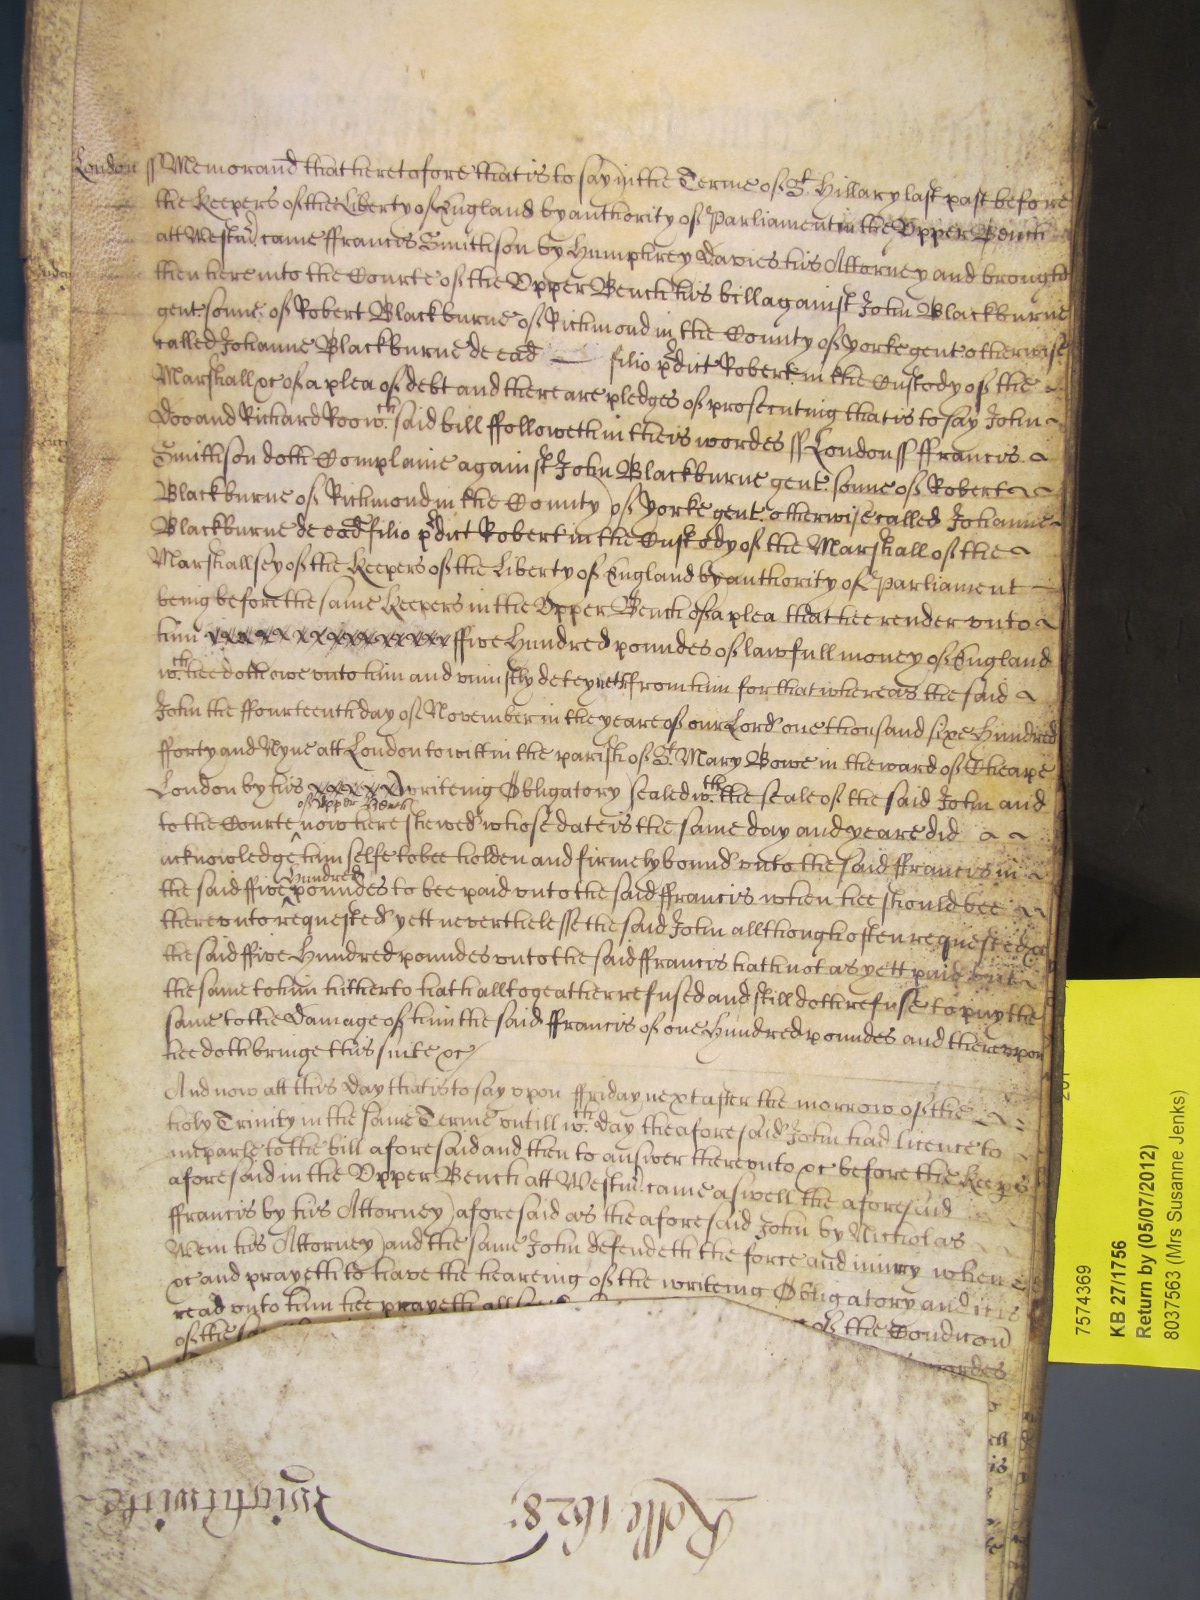 London ss Memorand that heretofore that is to say in the Terme of St. Hillary last past before
the Keepers of the Liberty of England by authority of Parliament in the Upper Bench
att Westm came ffrancis Smithson by Humphrey Davies his Attorney and brought
then here into the Courte of the Upper Bench his bill against John Blackburne
gent. sonne of Robert Blackburne of Richmond in the County of Yorke gent otherwise
called Johanne Blackburne de ead filio pdict Robert. in the Custody of the
Marshall &c of a plea of debt and there are pledges of prosecuting that is to say John
Doo and Richard Roo wch. said bill ffolloweth in theis wordes ss London ss ffrancis
Smithson doth Complaine against John Blackburne gent. sonne of Robert
Blackburne of Richmond in the County of Yorke gent. otherwise called Johanne
Blackburne de ead filio pdict Robert in the Custody of the Marshall of the
Marshallsey of the Keepers of the Liberty of England by authority of Parliament
being before the same Keepers in the Upper Bench of a plea that hee render unto
him ffive Hundred poundes of lawfull money of England
wch. hee doth owe unto him and uniustly deteyneth from him for that whereas the said
John the ffourteenth day of November in the yeare of our Lord one thousand sixe Hundred
fforty and Nyne att London to witt in the parish of St. Mary Bowe in the ward of Cheape
London by his writeing Obligatory sealed wth. the seale of the said John and
of Upper Bench
to the Courte now here shewed whose date is the same day and yeare did
acknowledge himselfe to bee holden and firmely bound unto the said ffrancis in
Hundred
the said ffive poundes to bee paid unto the said ffrancis when hee should bee
thereunto requested yett neverthelesse the said John allthough often requested &c
the said ffive Hundred poundes unto the said ffrancis hath not as yett paid but
the same to him hitherto hath alltogeather refused and still doth refuse to pay the
same to the Damage of him the said ffrancis of one Hundred poundes and thereupon
hee doth bringe this suite &c
And now att this Day that is to say upon ffriday next after the morrow of the
holy Trinity in the same Terme untill wch. day the aforesaid John had licence to
imparle to the bill aforesaid and then to answer thereunto &c before the Keeps
aforesaid in the Upper Bench att Westm. came aswell the aforesaid
ffrancis by his Attorney aforesaid as the aforesaid John by Nicholas
his Attorney and the same John defendeth the force and iniury when
&c and prayeth to have the heareing of the writeing Obligatory and it is
read unto him hee prayeth
of the of the Condicon
wordes
Rolle 1628
Wightwicke
7574369
KB 27/1756
Return by (05/07/2012)
8037563 (Mrs Susanne Jenks)